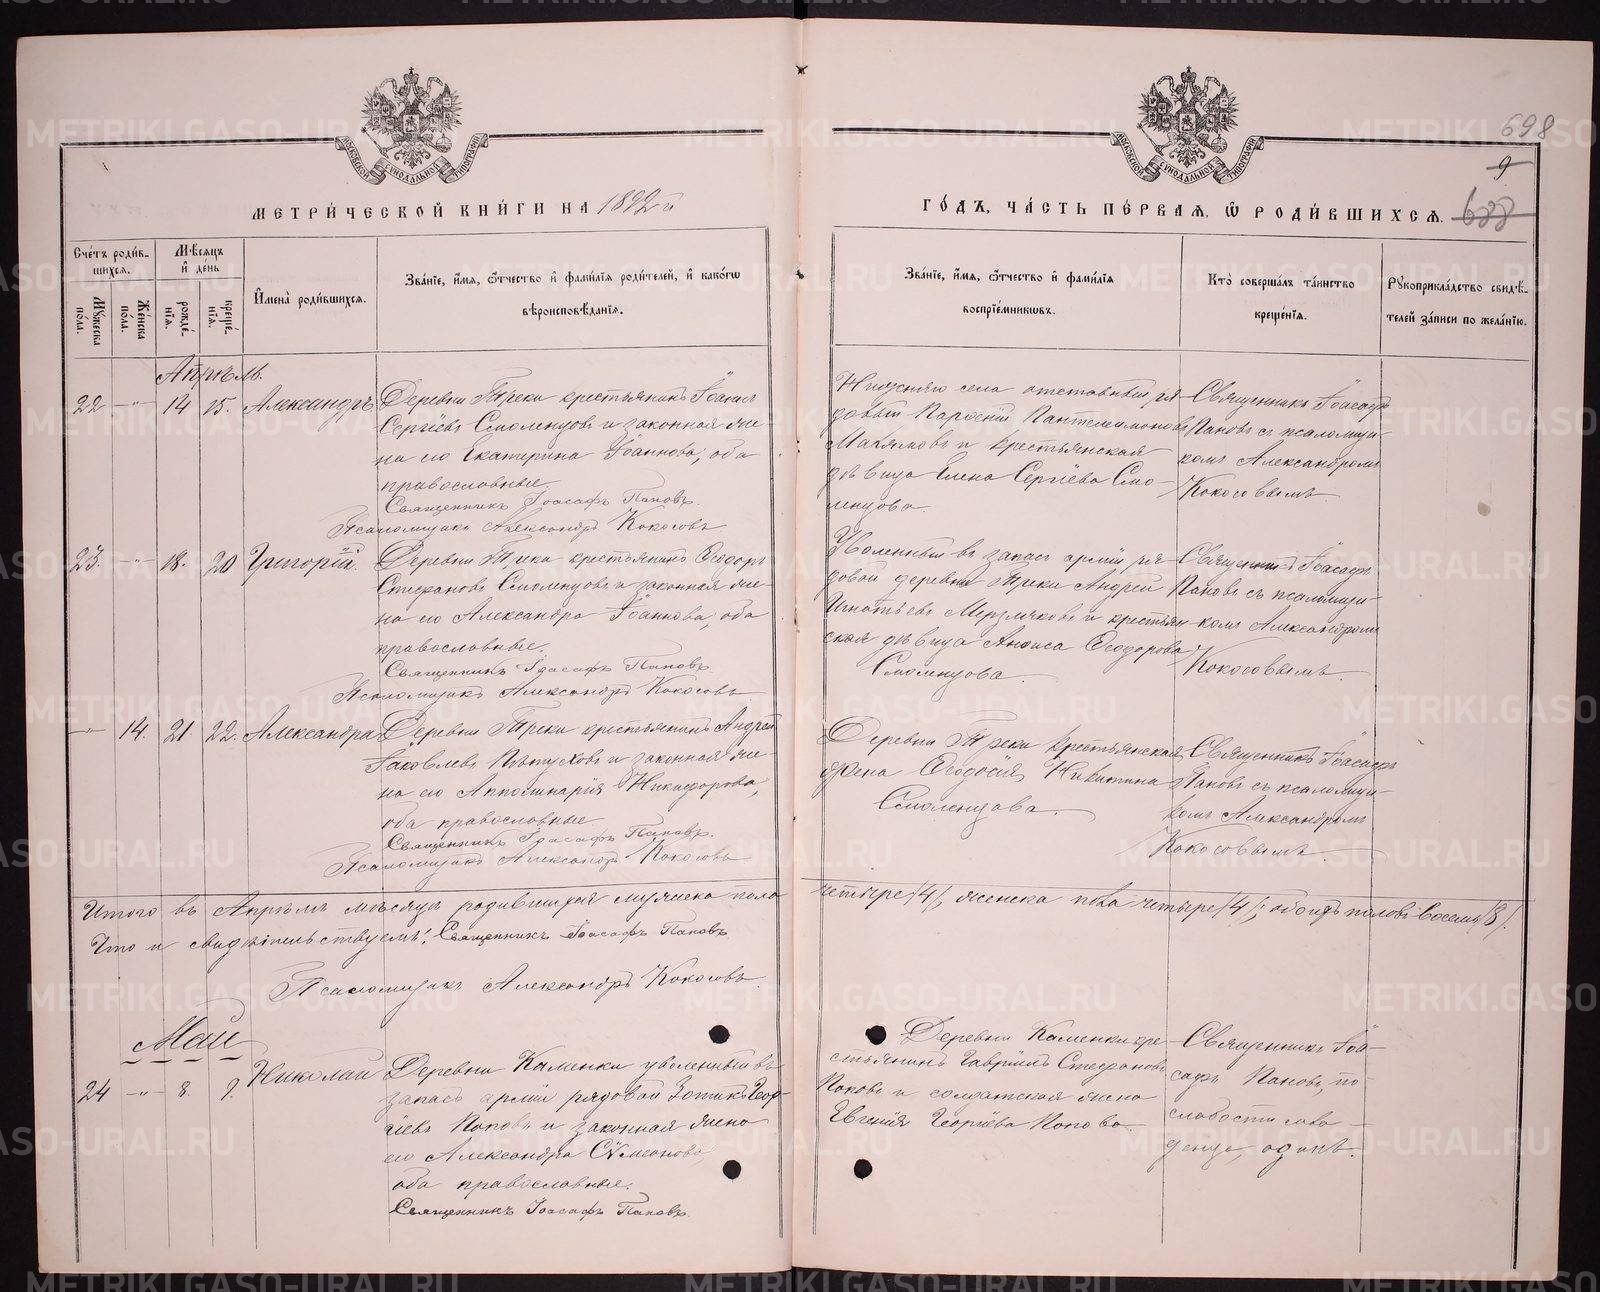 698
9
688
МОСКОВСКОЙ СѴНОДАЛЬНОЙ ТИПОГРАФІИ
МОСКОВСКОЙ СѴНОДАЛЬНОЙ ТИПОГРАФІИ
МЕТРИ́ЧЕСКОЙ КНИ́ГИ НА 1892й
ГО́ДЪ, ЧА́СТЬ ПЕ́РВАЯ, Ѿ РОДИ́ВШИХСѦ.
Сче́тъ роди́в-
шихся.
Мѣ́сяцъ
и҆ день
Мꙋ́жеска по́ла.
Же́нска по́ла.
рожде́нїѧ.
креще́нїѧ.
И҆мена̀ роди́вшихсѧ.
Зва́нїе, и҆́мѧ, ѻ҆́тчество и҆ фами́лїѧ роди́телей, и҆ како́гѡ
вѣроисповѣ́данїѧ.
Зва́нїе, и҆́мѧ, ѻ҆́тчество и҆ фами́лїѧ
воспрїе́мникѡвъ.
Кто̀ соверша́лъ та́инство
креще́нїѧ.
Рꙋкоприкла́дство свидѣ́-
телей за́писи по жела́нїю.
Апрѣль.
22 —"— 14 15. Александръ
Деревни Треки крестьянинъ Іоаннъ
Сергіевъ Смоленцовъ и законная же-
на его Екатерина Іоаннова, оба
православные.
Священникъ Іоасафъ Поповъ.
Псаломщикъ Александръ Кокосовъ
села отставный ря-
довый Пантелеимоновъ
и крестьянская
дѣвица Елена Сергіева Смо-
ленцова.
Священникъ Іоасафъ
Поповъ съ псаломщи-
комъ Александромъ
Кокосовымъ
23. —"— 18. 20 Григорій.
Деревни Треки крестьянинъ Ѳеодоръ
Стефановъ Смоленцовъ и законная же-
на его Александра Іоаннова, оба
православные.
Священникъ Іоасафъ Поповъ
Псаломщикъ Александръ Кокосовъ
Уволенный въ запасъ арміи ря-
довой деревни Треки Андрей
Игнатьевъ Мерзляковъ и крестьян-
ская дѣвица Анфиса Ѳеодорова
Смоленцова.
Священникъ Іоасафъ
Поповъ съ псаломщи-
комъ Александромъ
Кокосовымъ.
—"— 14. 21 22. Александра
Деревни Треки крестьянинъ Андрей
Іаковлевъ Пѣтуховъ и законная же-
на его Апполинарія Никифорова,
оба православные.
Священникъ Іоасафъ Поповъ.
Псаломщикъ Александръ Кокосовъ
Деревни Треки крестьянская
жена Ѳеодосія Никитина
Смоленцова.
Священникъ Іоасафъ
Поповъ съ псаломщи-
комъ Александромъ
Кокосовымъ.
Итого въ Апрѣлѣ мѣсяцѣ родившихся мужеска пола
четыре /4/, женска пола четыре /4/; обоихъ половъ восемь /8/.
Что и свидѣтельствуемъ: Священникъ Іоасафъ Поповъ
Псаломщикъ Александръ Кокосовъ.
Май
24 —"— 8. 9. Николай
Деревни Каменки уволенный въ
запасъ арміи рядовой Зотикъ Геор-
гіевъ Поповъ и законная жена
его Александра Сѵмеонова,
оба православные.
Священникъ Іоасафъ Поповъ.
Деревни Каменки кре-
стьянинъ Гавріилъ Стефановъ
Поповъ и солдатская жена
Евгенія Георгіева Попова.
Священникъ Іоа-
сафъ Поповъ, по
слабости мла-
денца, одинъ.
METRIKI.GASO-URAL.RU